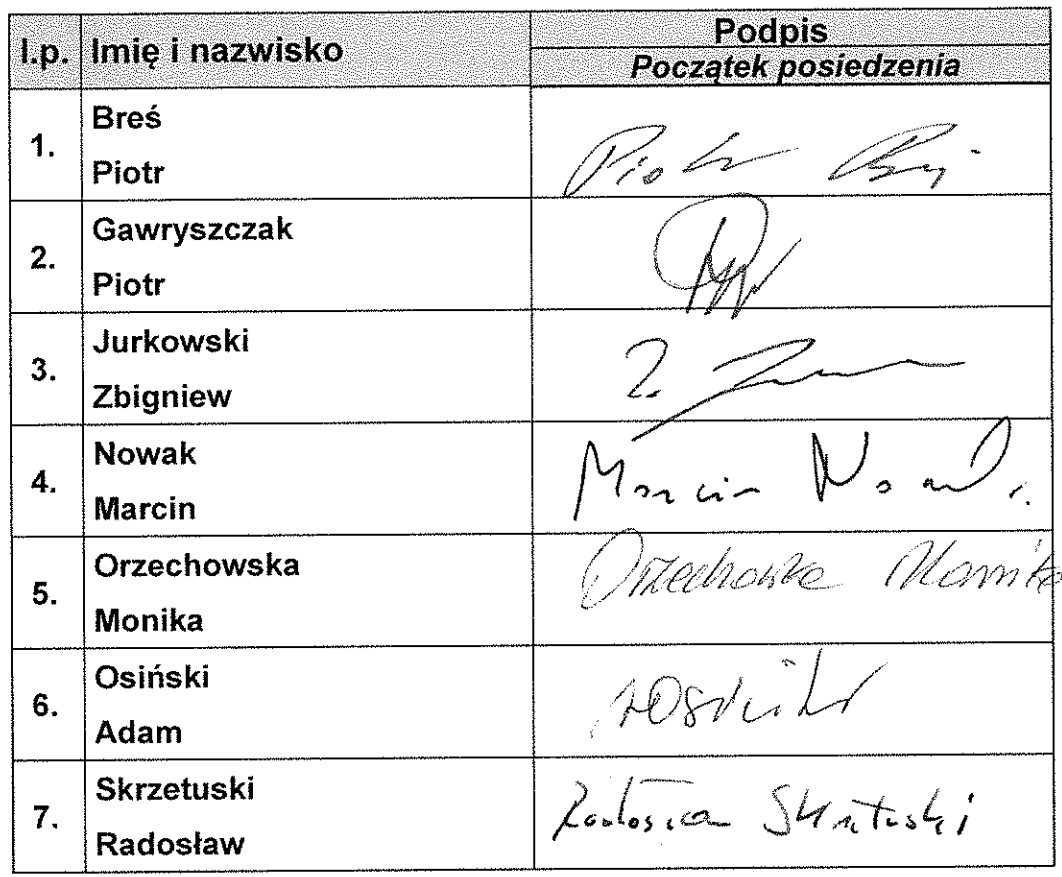 l.p. Imię i nazwisko
Podpis
Początek posiedzenia
1.
Breś
Piotr
Piotr Breś
2.
Gawryszczak
Piotr
3.
Jurkowski
Zbigniew
Z.
4.
Nowak
Marcin
Marcin Nowak
5.
Orzechowska
Monika
Orzechowska Monika
6.
Osiński
Adam
AOsiński
7.
Skrzetuski
Radosław
Radosław Skrzetuski